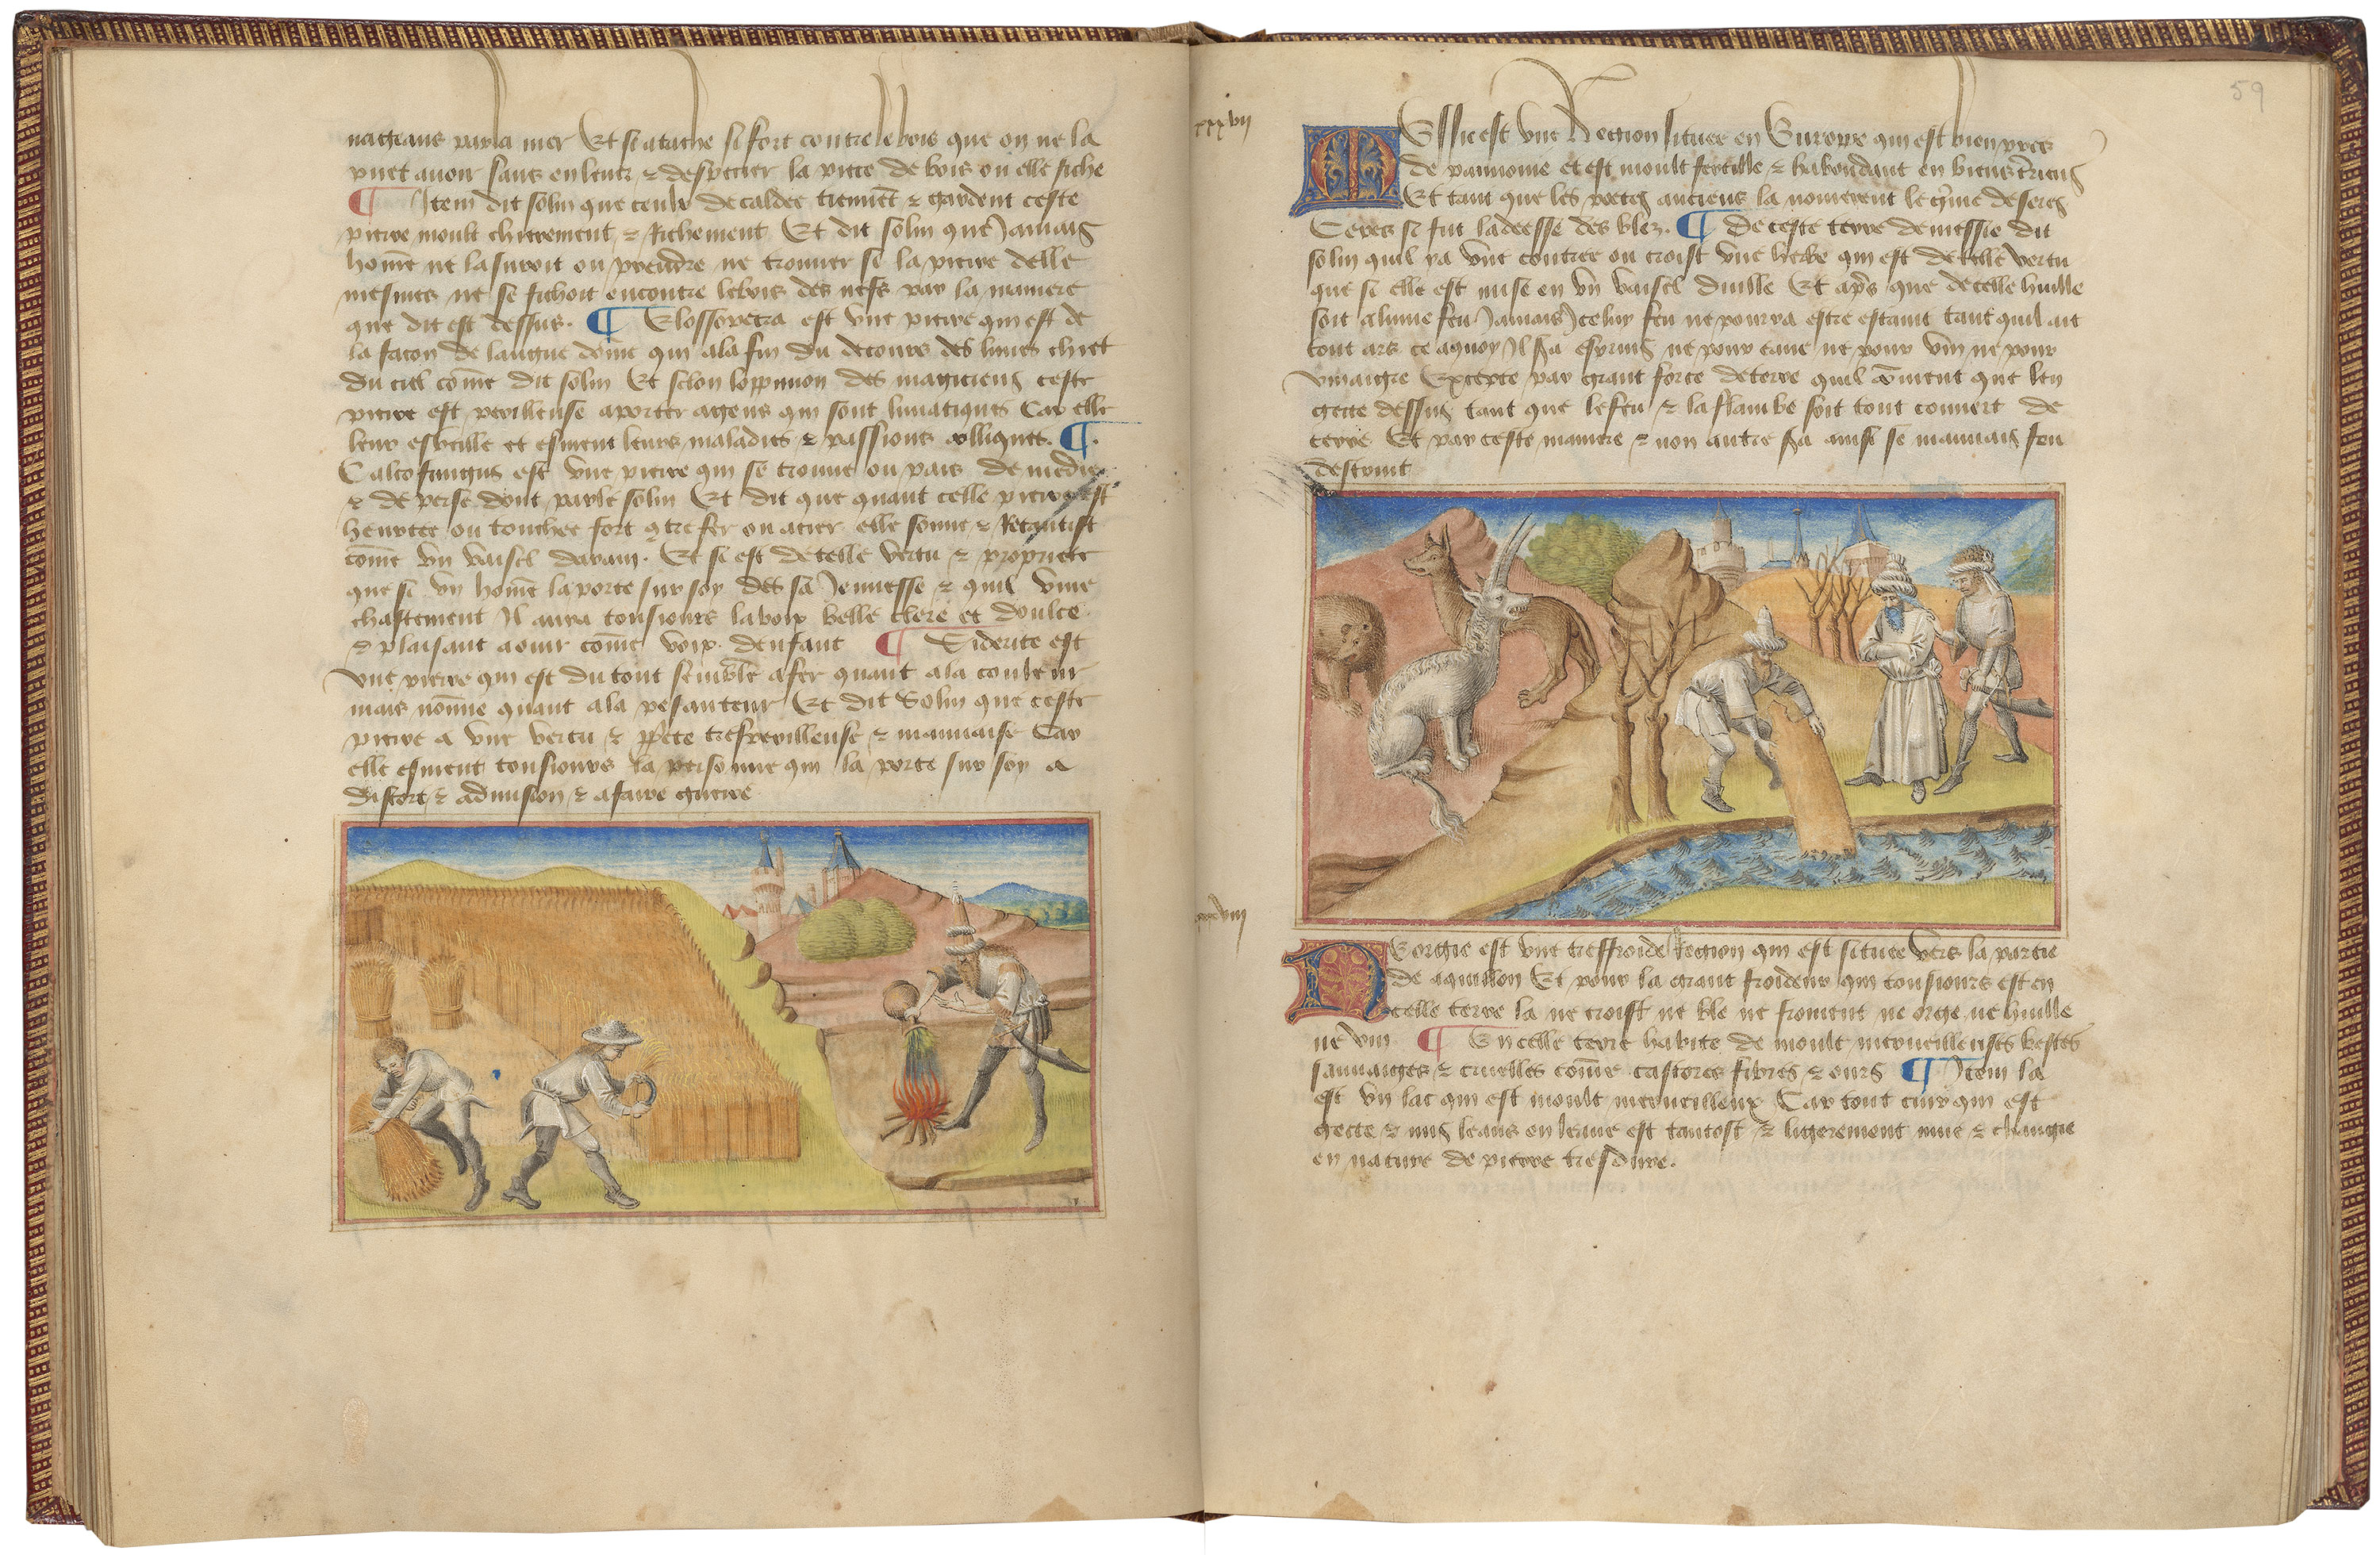 nageans par la mer Et si atache si fort contre le bois que on ne la
puet auoir sans enleuer & despecier la piece de bois ou elle siche
Item dit solin que ceulx de caldee tiennēt & gardent ceste
pierre moult chierement & Richement Et dit solin que Jamais
home ne la suroit ou prendre ne trouuer se la pierre delle
mesmes ne se fichoit encontre le bois des nefs par la maniere
que dit est dessus. ¶ Glossopetra est vne pierre qui est de
la facon de langue dōme qui ala fin du decours des lunes chiet
du ciel cōme dit solin Et selon loppinion des magiciens ceste
pierre est perilleuse aporter agens qui sont lunatiques Car elle
leur esueille et esment leurs maladies & passions colliques. ¶
Calcofungus est vne pierre qui se treuue ou pais de medie
& de perse dont parle solin Et dit que quant celle pierre est
heurtee ou touchee fort cōtre fer ou acier elle sonne & Retantist
cōme vn vaisel darain. Et si est de telle vertu & propriete
que se vn home la porte sur soy des sa Jennesse & quil viue
chastement Il aura tousiours la voix belle clere et doulce
& plaisant aouir cōme voix denfant ¶ Siderite est
vne pierre qui est du tout semblē afer quant ala couleur
mais nōmie quant ala pesanteur Et dit Solin que ceste
pierre a vne vertu & pp̄ete tresperilleuse & mauuaise Car
elle esment tousiours la personne qui la porte sur soy a
discort & adiuision & afaire guerre
xxxvij
59
MEssie est vne Region situee en Europe qui est bien pres
de pannonie et est moult fertille & habondant en biens t̄riens
Et tant que les poetes anciens la nommerent le grenier de seres
Ceres si fut la deesse des blez. ¶ De ceste terre de messie dit
solin quil ya vne contree ou croist vne herbe qui est de telle vertu
que se elle est mise en vn vaisel duille Et ap̄s que de celle huille
soit alume feu Jamais Iceluy feu ne pourra estre estaint tant quil ait
tout ars ce aquoy Il sa esprins ne pour eaue ne pour vin ne pour
vinaigre Excepte par grant force de terre quil cōuient que len
gette dessus tant que le feu & la flambe soit tout couuert de
terre Et par ceste maniere & non autre sa ainsi se mauuais feu
destruit
xxxviij
NEorgie est vne tresfroide Region qui est situee vers la partie
de aquillon Et pour la grant froideur qui tousiours est en
celle terre la ne croist ne ble ne froment ne orge ne huille
ne vin ¶ En celle terre habite de moult merueilleuses bestes
sauuaiges & cruelles cōme castores fibres & ours ¶ Item la
est vn lac qui est moult merueilleux Car tout cuir qui est
gecte & mis leans en leaue est tantost & ligerement mue & change
en nature de pierre tresdure.